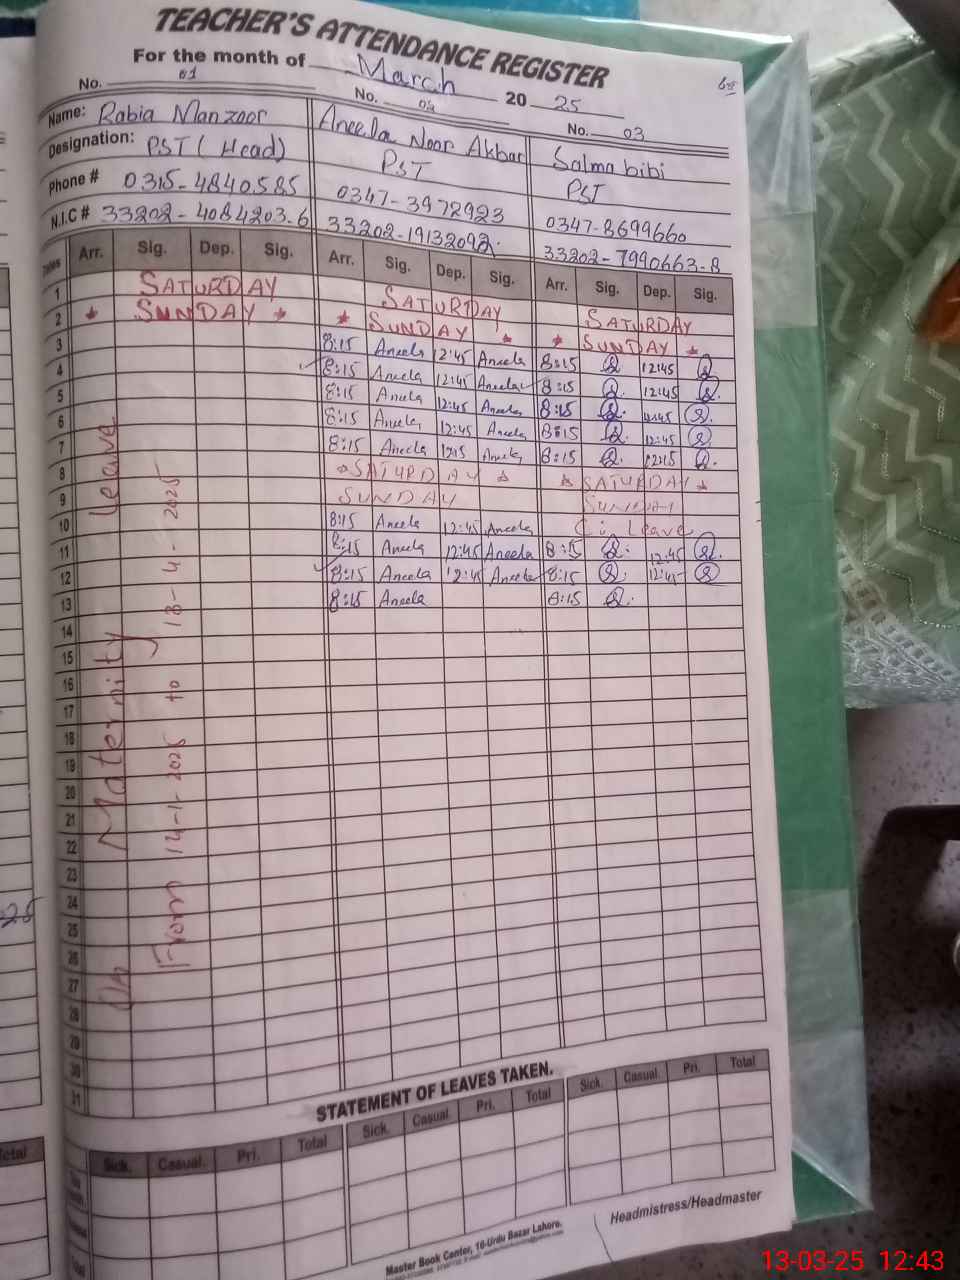 TEACHER'S ATTENDANCE REGISTER
For the month of March 20 25
No. 01 No. 02 No. 03
Name: Rabia Manzoor Aneela Noor Akbar Salma bibi
Designation: PST (Head) PST PST
Phone # 0315-4840585 0347-3972923 0347-8699660
N.I.C # 33202-4084203-6 33202-1913209 33202-7990663-8
Dates Arr. Sig. Dep. Sig. Arr. Sig. Dep. Sig. Arr. Sig. Dep. Sig.
1 SATURDAY SATURDAY SATURDAY
2 * SUNDAY * * SUNDAY * * SUNDAY *
3 8:15 Aneela 12:45 Aneela 8:15 12:45
4 8:15 Aneela 12:45 Aneela 8:15 12:45
5 8:15 Aneela 12:45 Aneela 8:15 12:45
6 8:15 Aneela 12:45 Aneela 8:15 12:45
7 8:15 Aneela 12:15 Aneela 8:15 12:15
8 * SATURDAY * * SATURDAY *
9 SUNDAY SUNDAY
10 8:15 Aneela 12:45 Aneela C. Leave
11 8:15 Aneela 12:45 Aneela 8:15 12:45
12 8:15 Aneela 12:45 Aneela 8:15 12:45
13 8:15 Aneela 8:15
14
15
16
17
18
19
20
21
22
23
24
25
26
27
28
29
30
31
On Maternity Leave
From 14-1-2025 to 13-4-2025
STATEMENT OF LEAVES TAKEN.
Sick. Casual. Pri. Total Sick. Casual. Pri. Total Sick. Casual. Pri. Total
Total
Headmistress/Headmaster
Master Book Center, 16-Urdu Bazar Lahore.
13-03-25 12:43